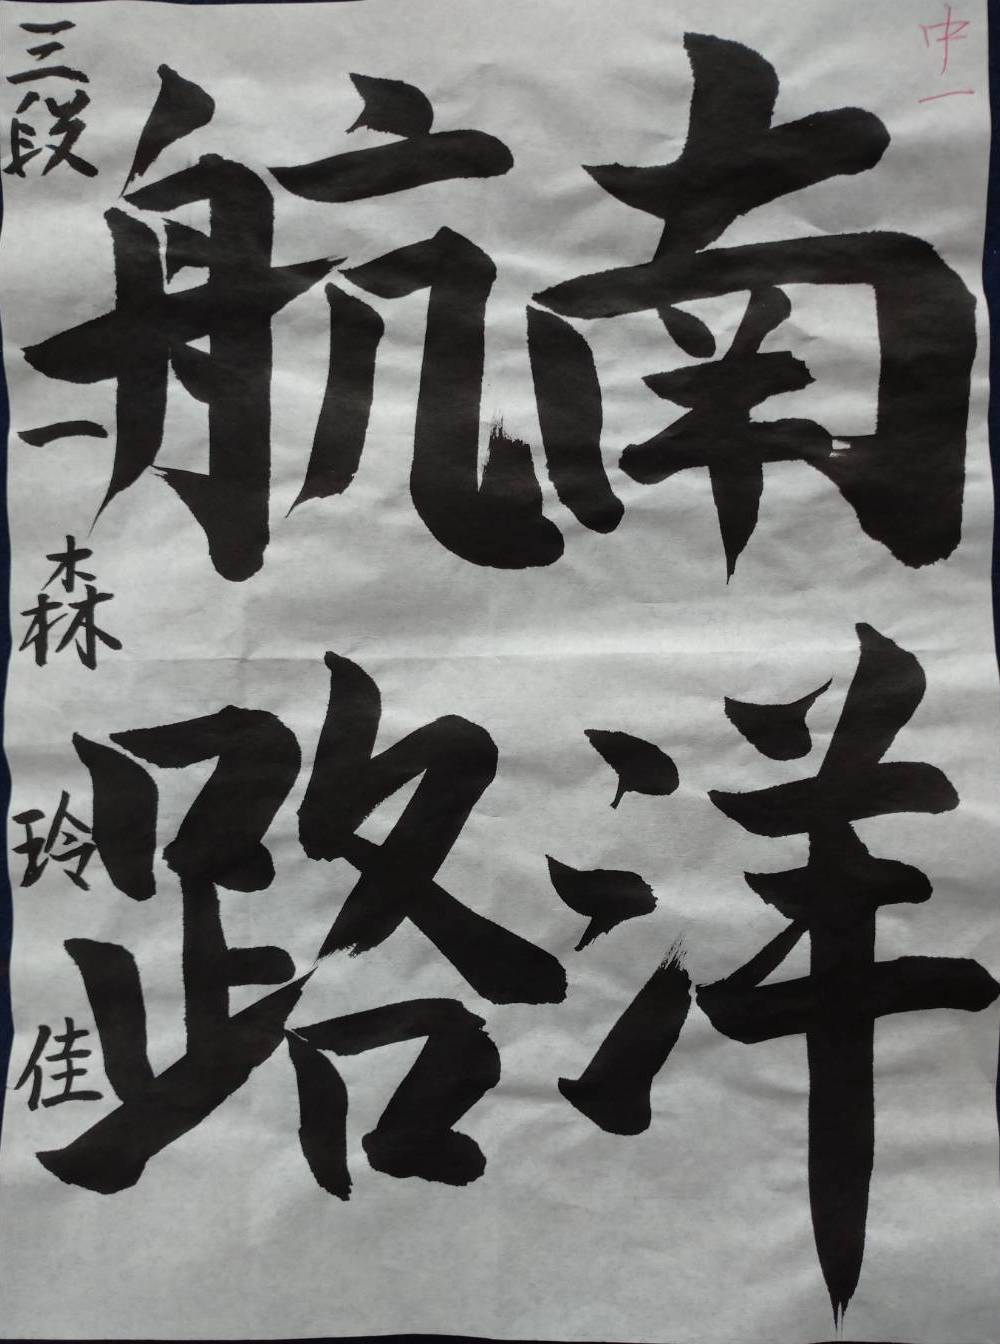 中一
南洋
航路
三段 一 森 玲佳